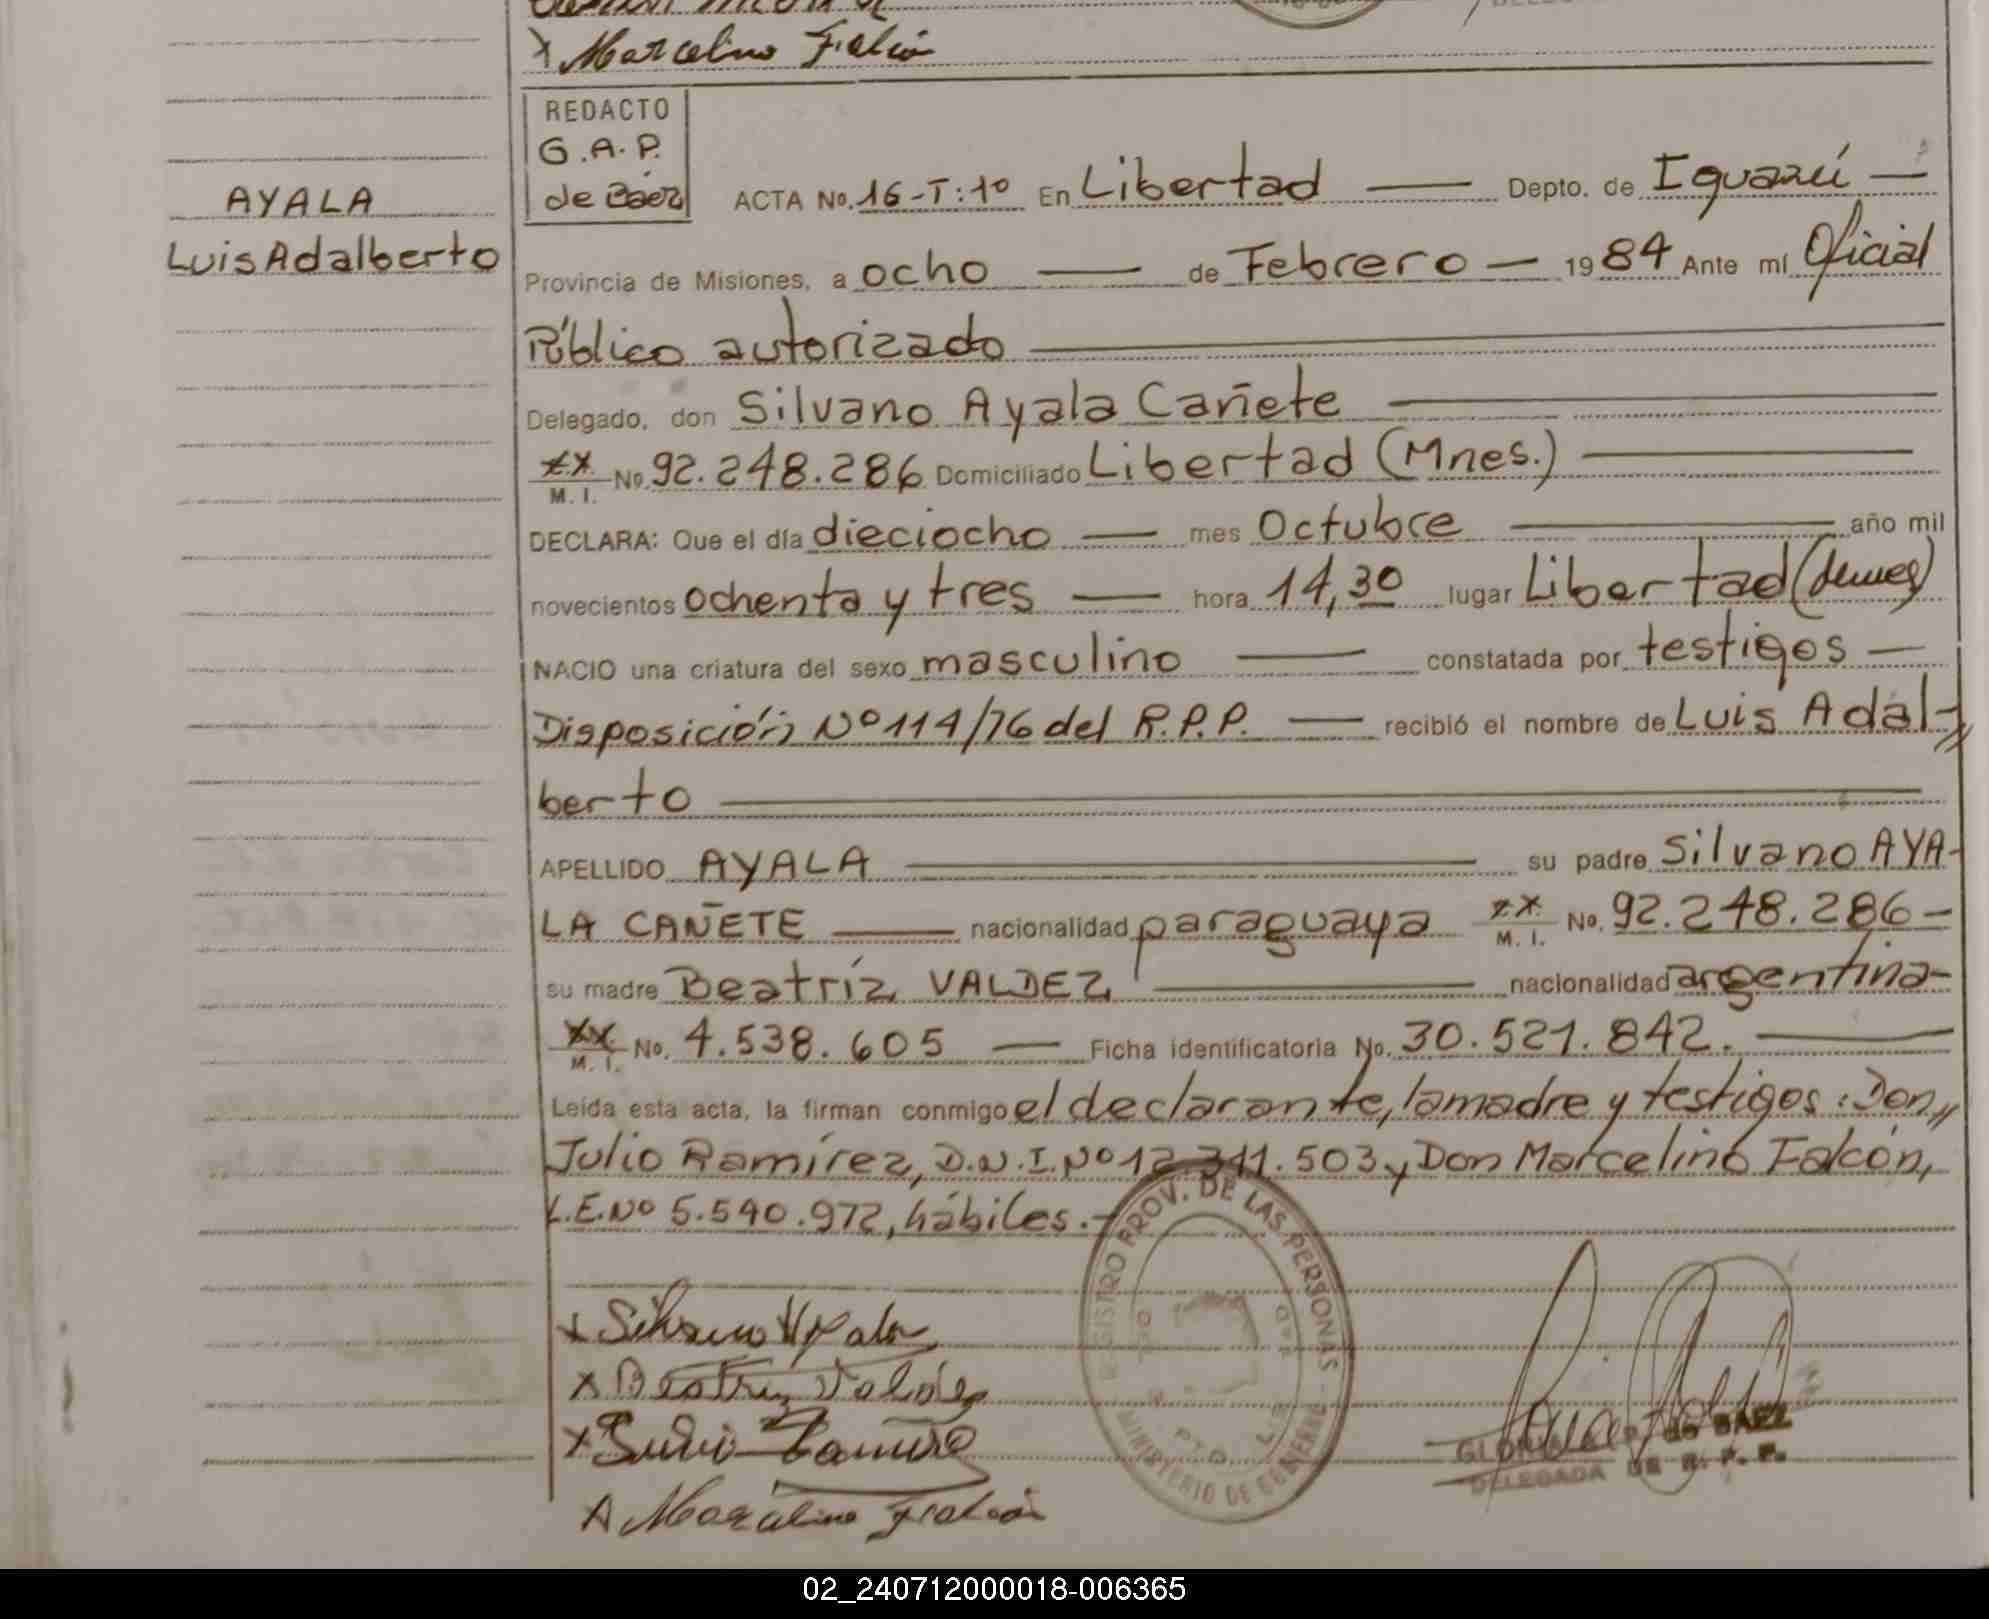 x Marcelino Falcón
REDACTO
G.A.P.
de Báez
AYALA
Luis Adalberto
ACTA No. 16-T:1º En Libertad — Depto. de Iguazú —
Provincia de Misiones, a ocho — de Febrero — 1984 Ante mí Oficial
Público autorizado —
Delegado, don Silvano Ayala Cañete —
xx M. I. No. 92.248.286 Domiciliado Libertad (Mnes.) —
DECLARA: Que el día dieciocho — mes Octubre — año mil
novecientos ochenta y tres — hora 14,30 lugar Libertad
NACIO una criatura del sexo masculino — constatada por testigos —
Disposición Nº 114/76 del R.P.P. — recibió el nombre de Luis Adal-
berto —
APELLIDO AYALA — su padre Silvano AYA-
LA CAÑETE — nacionalidad paraguaya xx M. I. No. 92.248.286 —
su madre Beatríz VALDEZ — nacionalidad argentina-
xx M. I. No. 4.538.605 — Ficha identificatoria No. 30.521.842. —
Leída esta acta, la firman conmigo el declarante, la madre y testigos: Don
Julio Ramírez, D.N.I. Nº 12.311.503 y Don Marcelino Falcón,
L.E. Nº 5.540.972, hábiles.-
REGISTRO PROV. DE LAS PERSONAS
MINISTERIO DE GOBIERNO
x Silvano Ayala
x Beatriz Valdéz
x Julio Ramirez
x Marcelino Falcón
GLORIA A. P. de BAEZ
DELEGADA DE R. P. P.
02_240712000018-006365